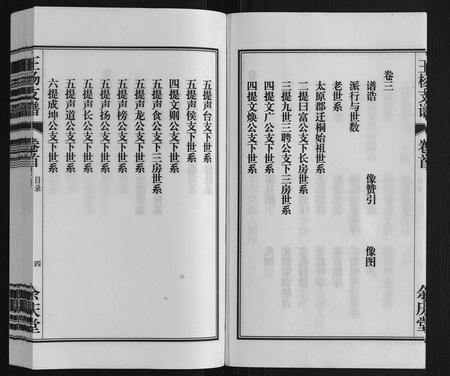 卷三
谱诰 像赞引 像图
派行与世数
老世系
太原郡迁桐始祖世系
二提曰富公支下长房世系
三提九世三聘公支下三房世系
四提文广公支下世系
四提文焕公支下世系
五提声台支下世系
五提声侯支下世系
四提文则公支下世系
五提声食公支下三房世系
五提声龙公支下世系
五提声榜公支下世系
五提声扬公支下世系
五提声长公支下世系
五提声道公支下世系
六提成坤公支下世系
王杨支谱 卷首 目录 四 余庆堂
王杨支谱 卷首 余庆堂